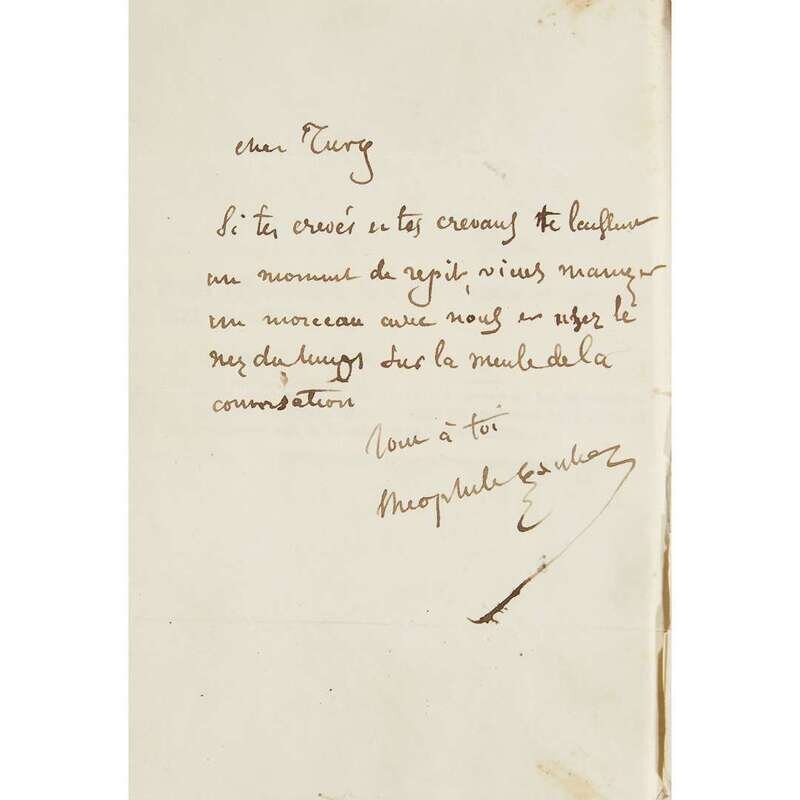 cher Turg
Si tes crevés et tes crevans te laissent
un moment de repit, viens manger
un morceau avec nous et usez le
nez du temps sur la meule de la
conversation
tout à toi
theophile Gautier